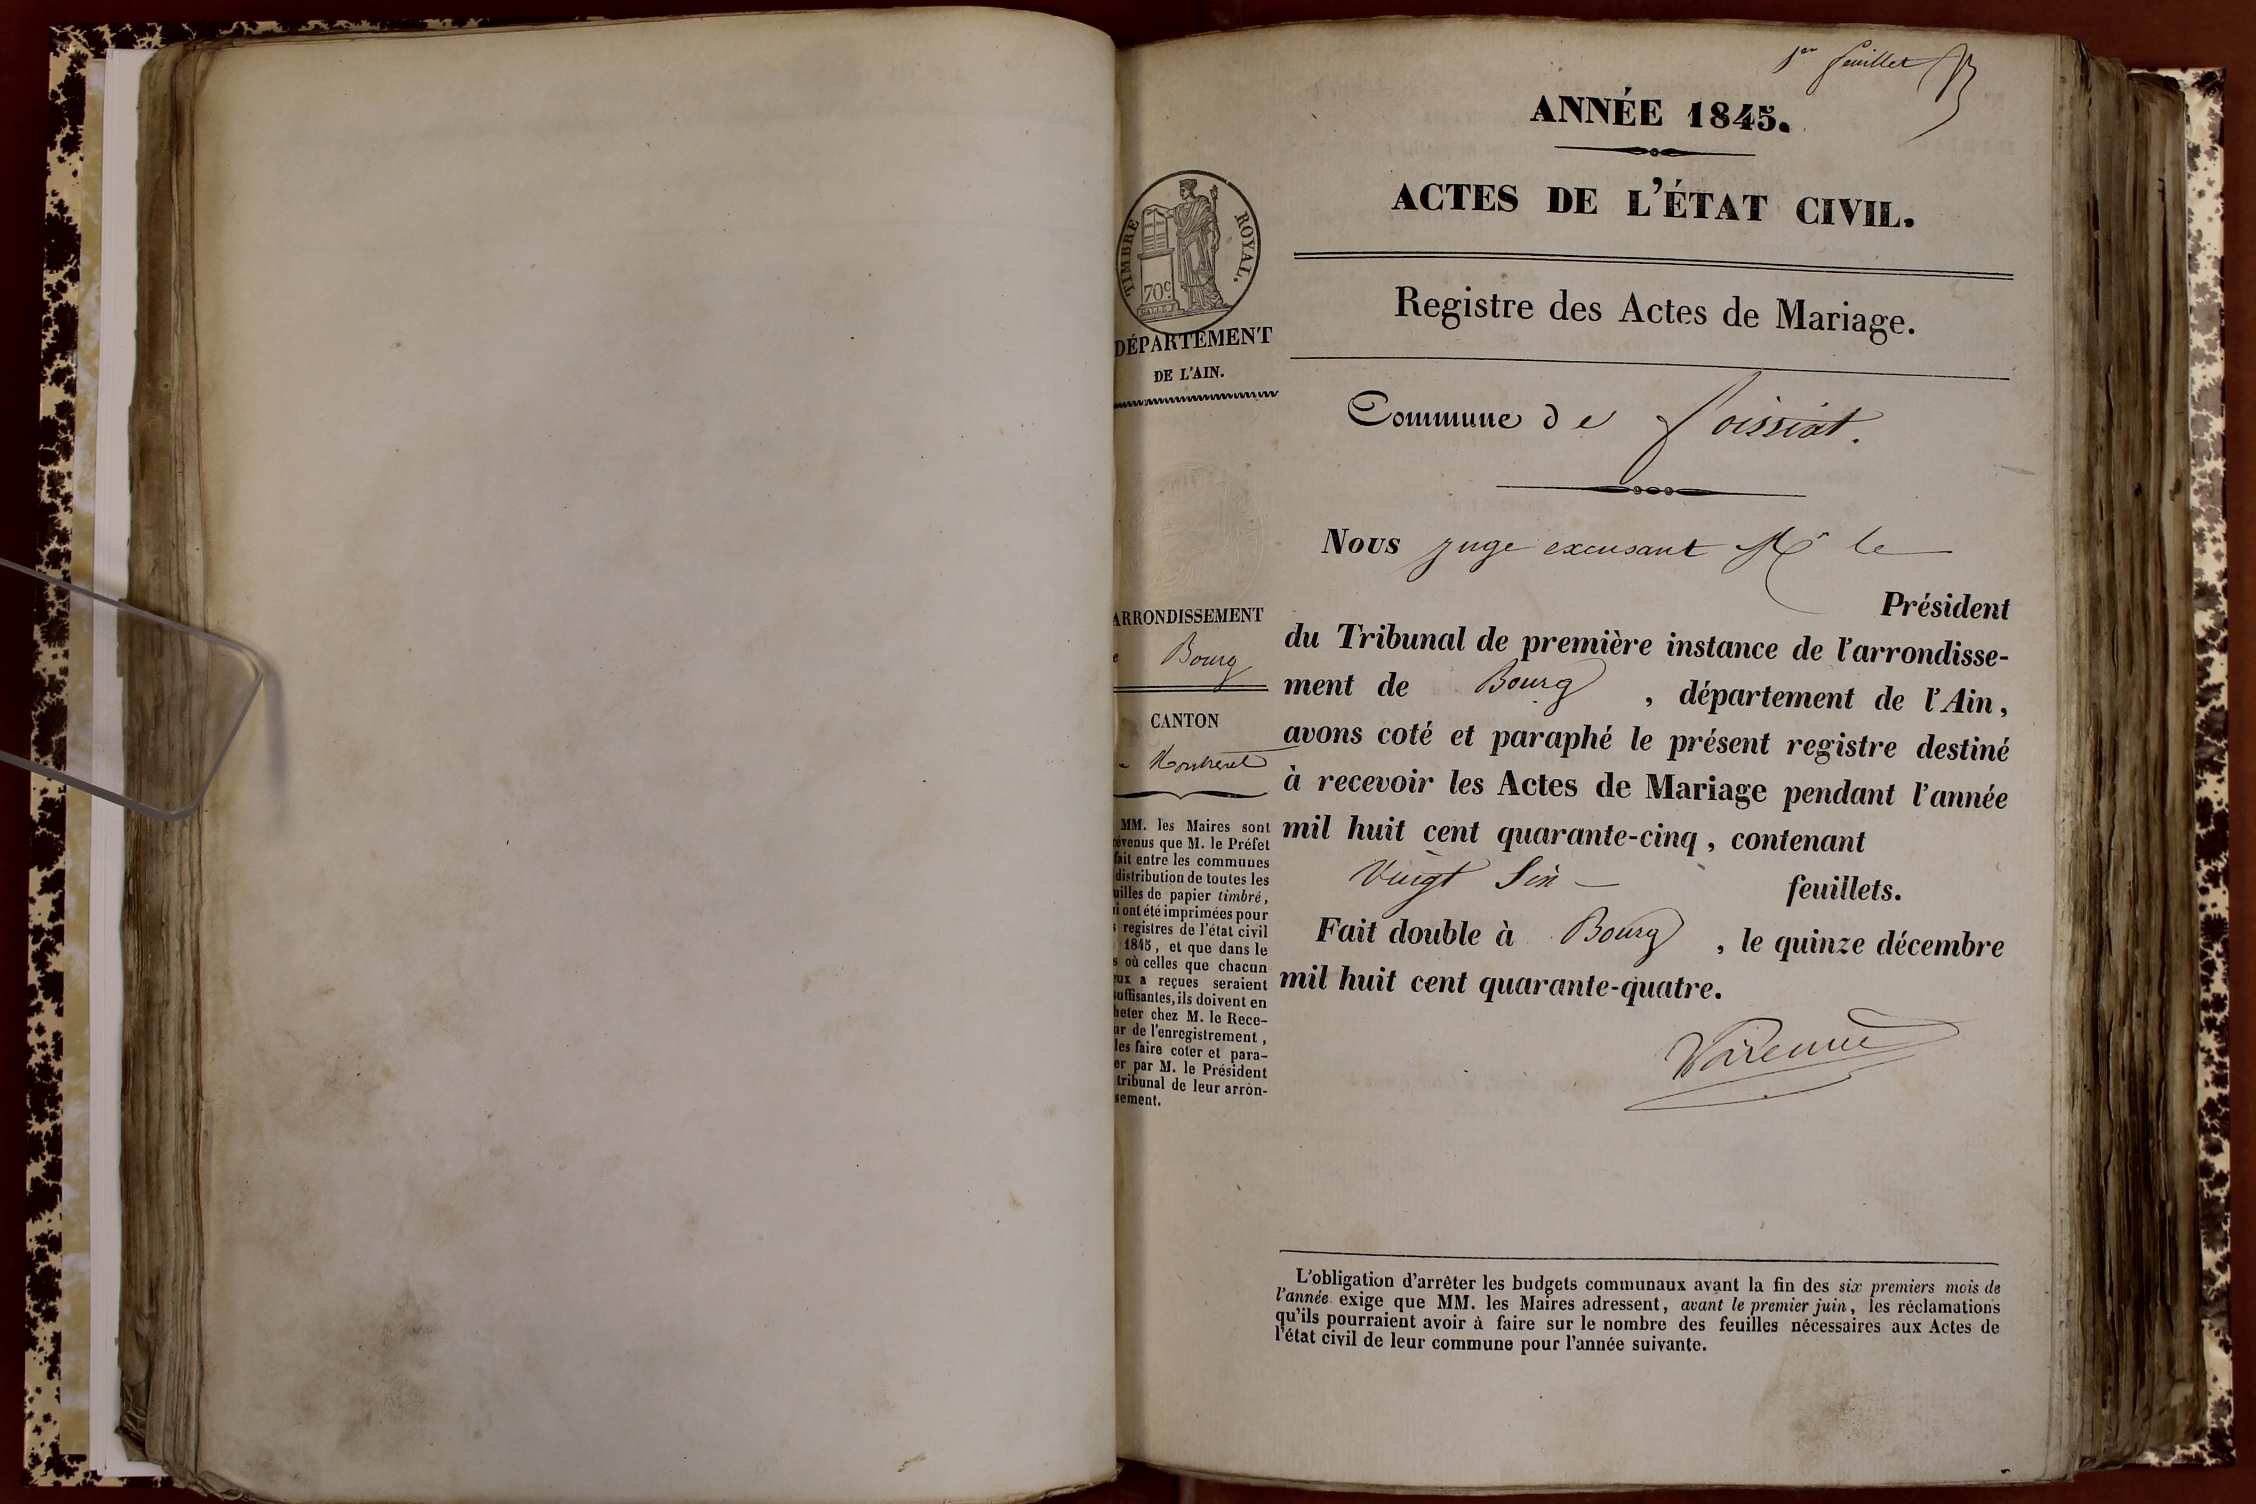 1er feuillet
ANNÉE 1845.
ACTES DE L'ÉTAT CIVIL.
TIMBRE ROYAL.
70c
DÉPARTEMENT
DE L'AIN.
Registre des Actes de Mariage.
Commune de Foissiat.
Nous juge excusant Mr le
Président
du Tribunal de première instance de l'arrondisse-
ment de Bourg , département de l'Ain,
avons coté et paraphé le présent registre destiné
à recevoir les Actes de Mariage pendant l'année
mil huit cent quarante-cinq, contenant
Vingt Six feuillets.
Fait double à Bourg , le quinze décembre
mil huit cent quarante-quatre.
ARRONDISSEMENT
e Bourg
CANTON
Montrevel
MM. les Maires sont
révenus que M. le Préfet
fait entre les communes
distribution de toutes les
uilles de papier timbré,
i ont été imprimées pour
s registres de l'état civil
1845, et que dans le
s où celles que chacun
eux a reçues seraient
uffisantes, ils doivent en
heter chez M. le Rece-
ur de l'enregistrement,
les faire coter et para-
er par M. le Président
tribunal de leur arron-
sement.
L'obligation d'arrêter les budgets communaux avant la fin des six premiers mois de
l'année exige que MM. les Maires adressent, avant le premier juin, les réclamations
qu'ils pourraient avoir à faire sur le nombre des feuilles nécessaires aux Actes de
l'état civil de leur commune pour l'année suivante.